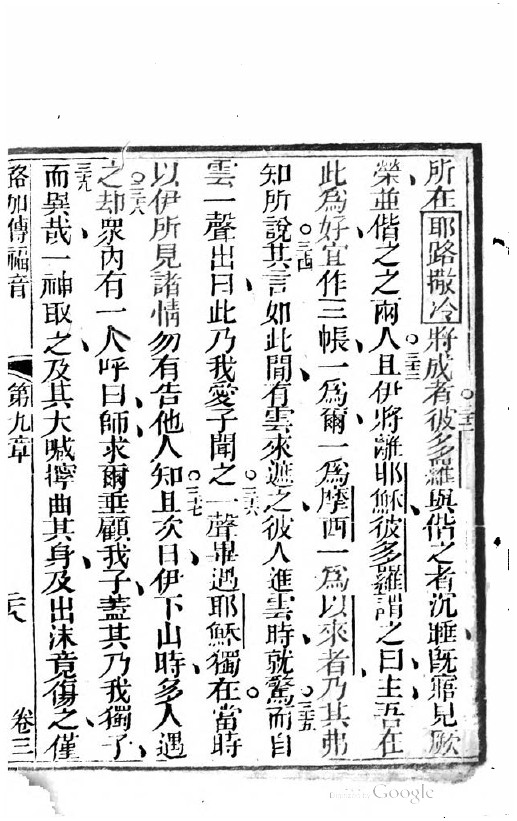 所在耶路撒冷將成者彼多羅與偕之者沉睡既寤見厥
三十二
榮並偕之之兩人且伊將離耶穌彼多羅謂之曰主吾在
三十三
此為好宜作三帳一為爾一為摩西一為以來者乃其弗
知所說其言如此間有雲來遮之彼人進雲時就驚而自
三十四
三十五
雲一聲出曰此乃我愛子聞之一聲畢遇耶穌獨在當時
三十六
以伊所見諸情勿有告他人知且次日伊下山時多人遇
三十七
之却眾內有一人呼曰師求爾垂顧我子蓋其乃我獨子
三十八
而巽哉一神取之及其大喊擰曲其身及出沫竟傷之僅
三十九
路加傳福音 第九章 二八 卷三
Google